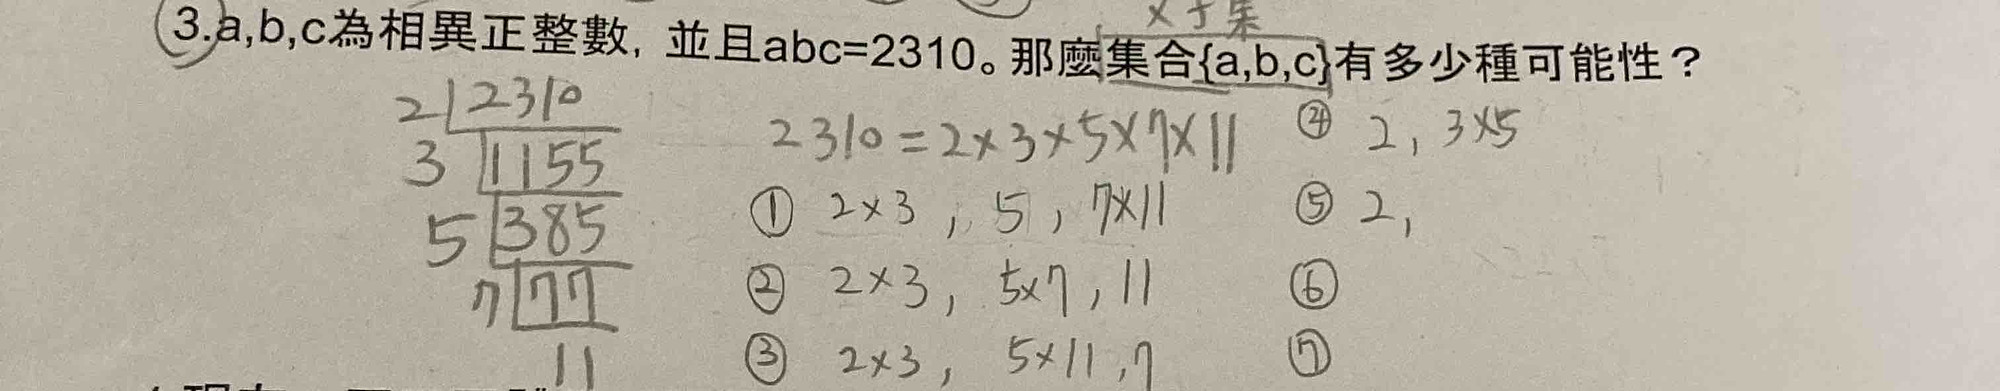 ×子集
3.a,b,c為相異正整數, 並且abc=2310。那麼集合{a,b,c}有多少種可能性?
2 2310
3 1155
5 385
7 77
11
2310=2×3×5×7×11
① 2×3, 5, 7×11
② 2×3, 5×7, 11
③ 2×3, 5×11, 7
④ 2, 3×5
⑤ 2,
⑥
⑦